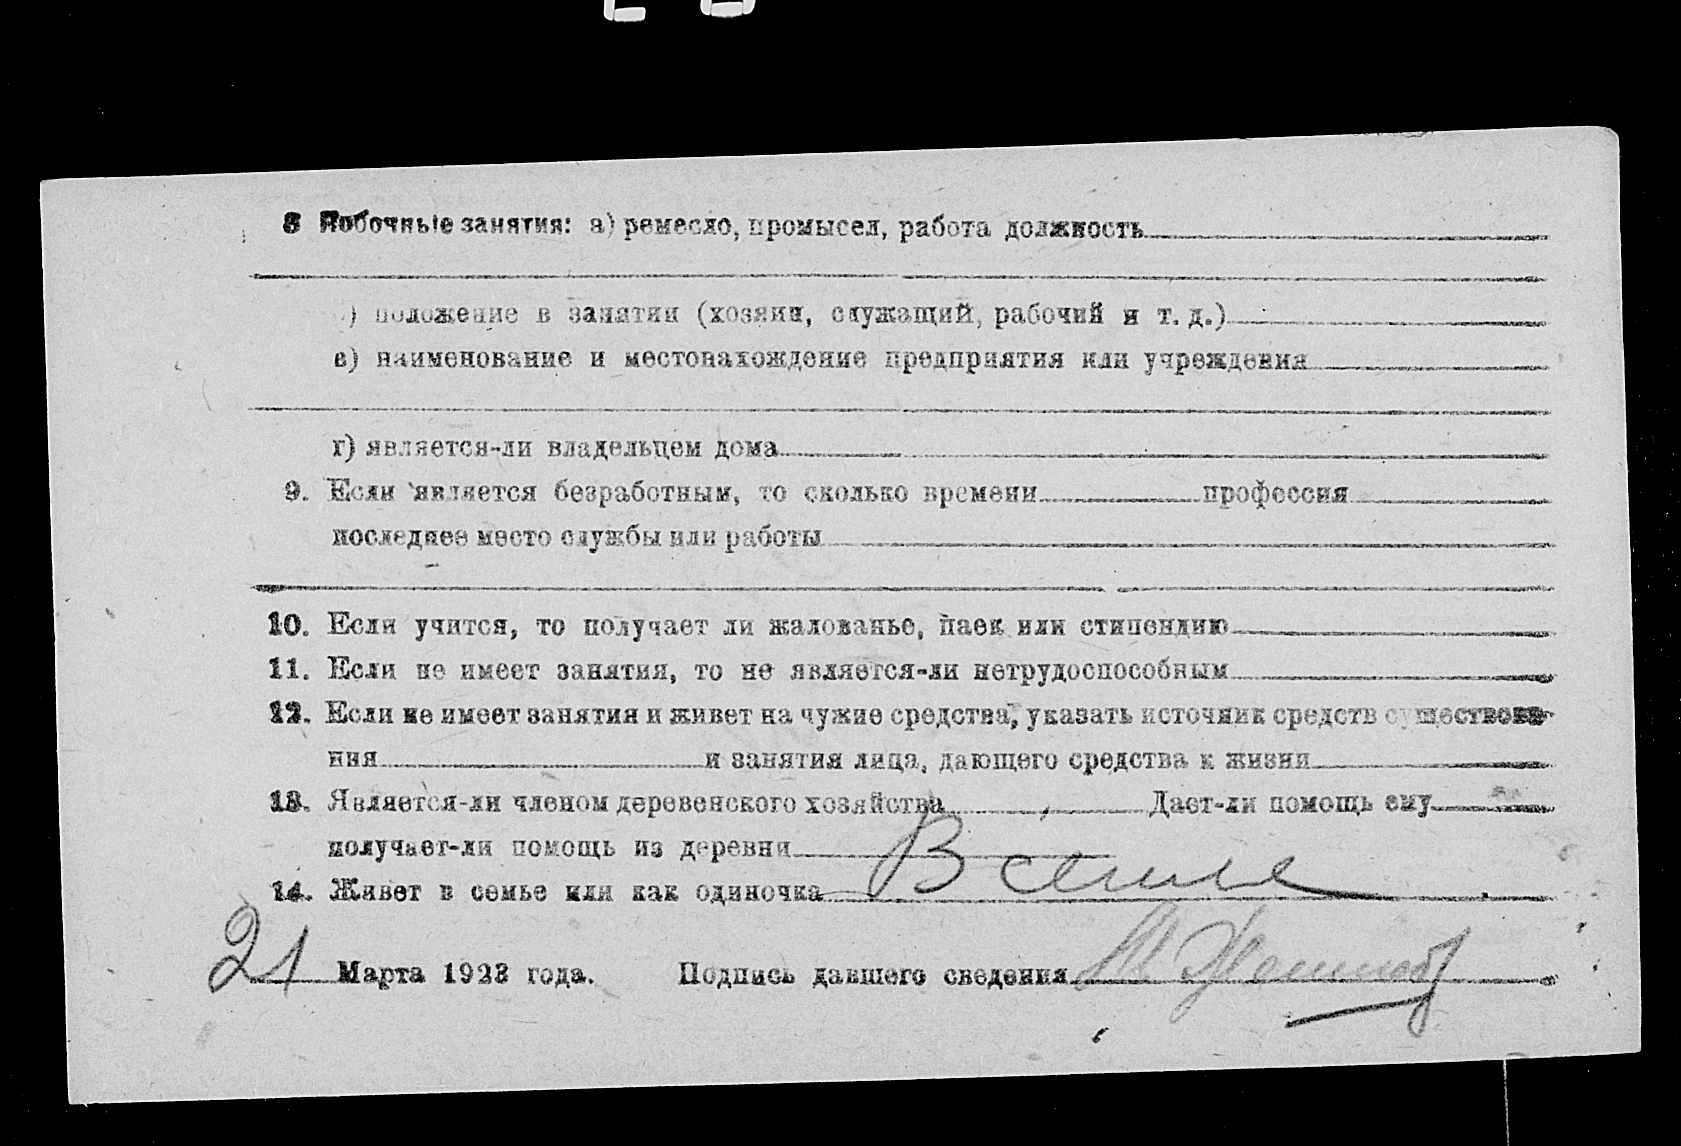 8 Побочные занятия: а) ремесло, промысел, работа должность
) положение в занятии (хозяин, служащий, рабочий и т. д.)
в) наименование и местонахождение предприятия или учреждения
г) является-ли владельцем дома
9. Если является безработным, то сколько времени профессия
последнее место службы или работы
10. Если учится, то получает ли жалованье, паек или стипендию
11. Если не имеет занятия, то не является-ли нетрудоспособным
12. Если не имеет занятия и живет на чужие средства, указать источник средств существова-
ния и занятия лица, дающего средства к жизни
13. Является-ли членом деревенского хозяйства Дает-ли помощь ему
получает-ли помощь из деревни
14. Живет в семье или как одиночка В семье
21 Марта 1923 года. Подпись давшего сведения